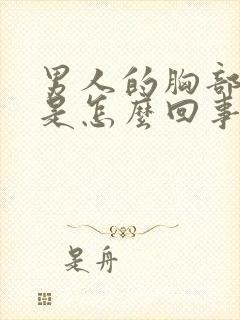 男人的胸部
是怎麼回事
是舟